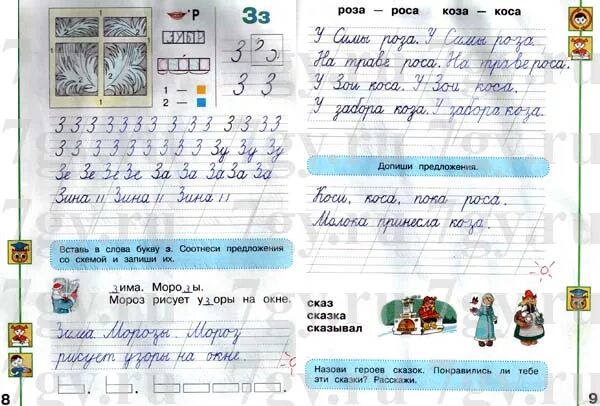 'Р
Зз
1 —
2 —
1
2
1
З З
З З
З З З З З З З З З З З З З З
З З З З З З З З З Зу Зу Зу
Зе Зе Зе Зе За За За За За
Зина Зина Зина
Вставь в слова букву з. Соотнеси предложения
со схемой и запиши их.
зима. Морозы.
Мороз рисует узоры на окне.
Зима. Морозы. Мороз
рисует узоры на окне.
8
роза — роса коза — коса
У Симы роза. У Симы роза.
На траве роса. На траве роса.
У Зои коса. У Зои коса.
У забора коза. У забора коза.
Допиши предложения.
Коси, коса, пока роса.
Молока принесла коза.
сказ
сказка
сказывал
Назови героев сказок. Понравились ли тебе
эти сказки? Расскажи.
9
7gv.ru